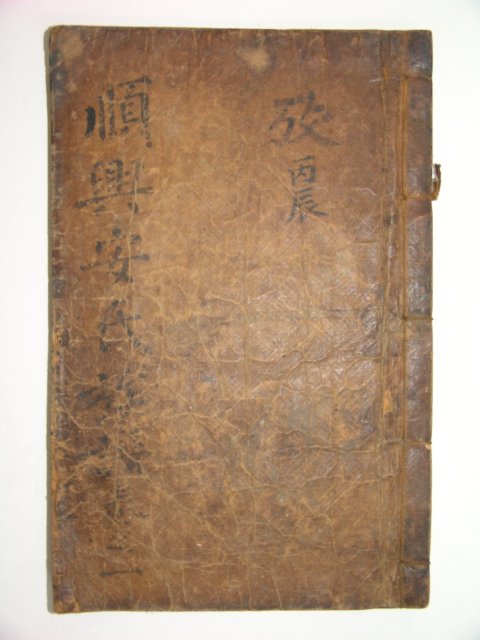 攷丙辰
順興安氏族譜